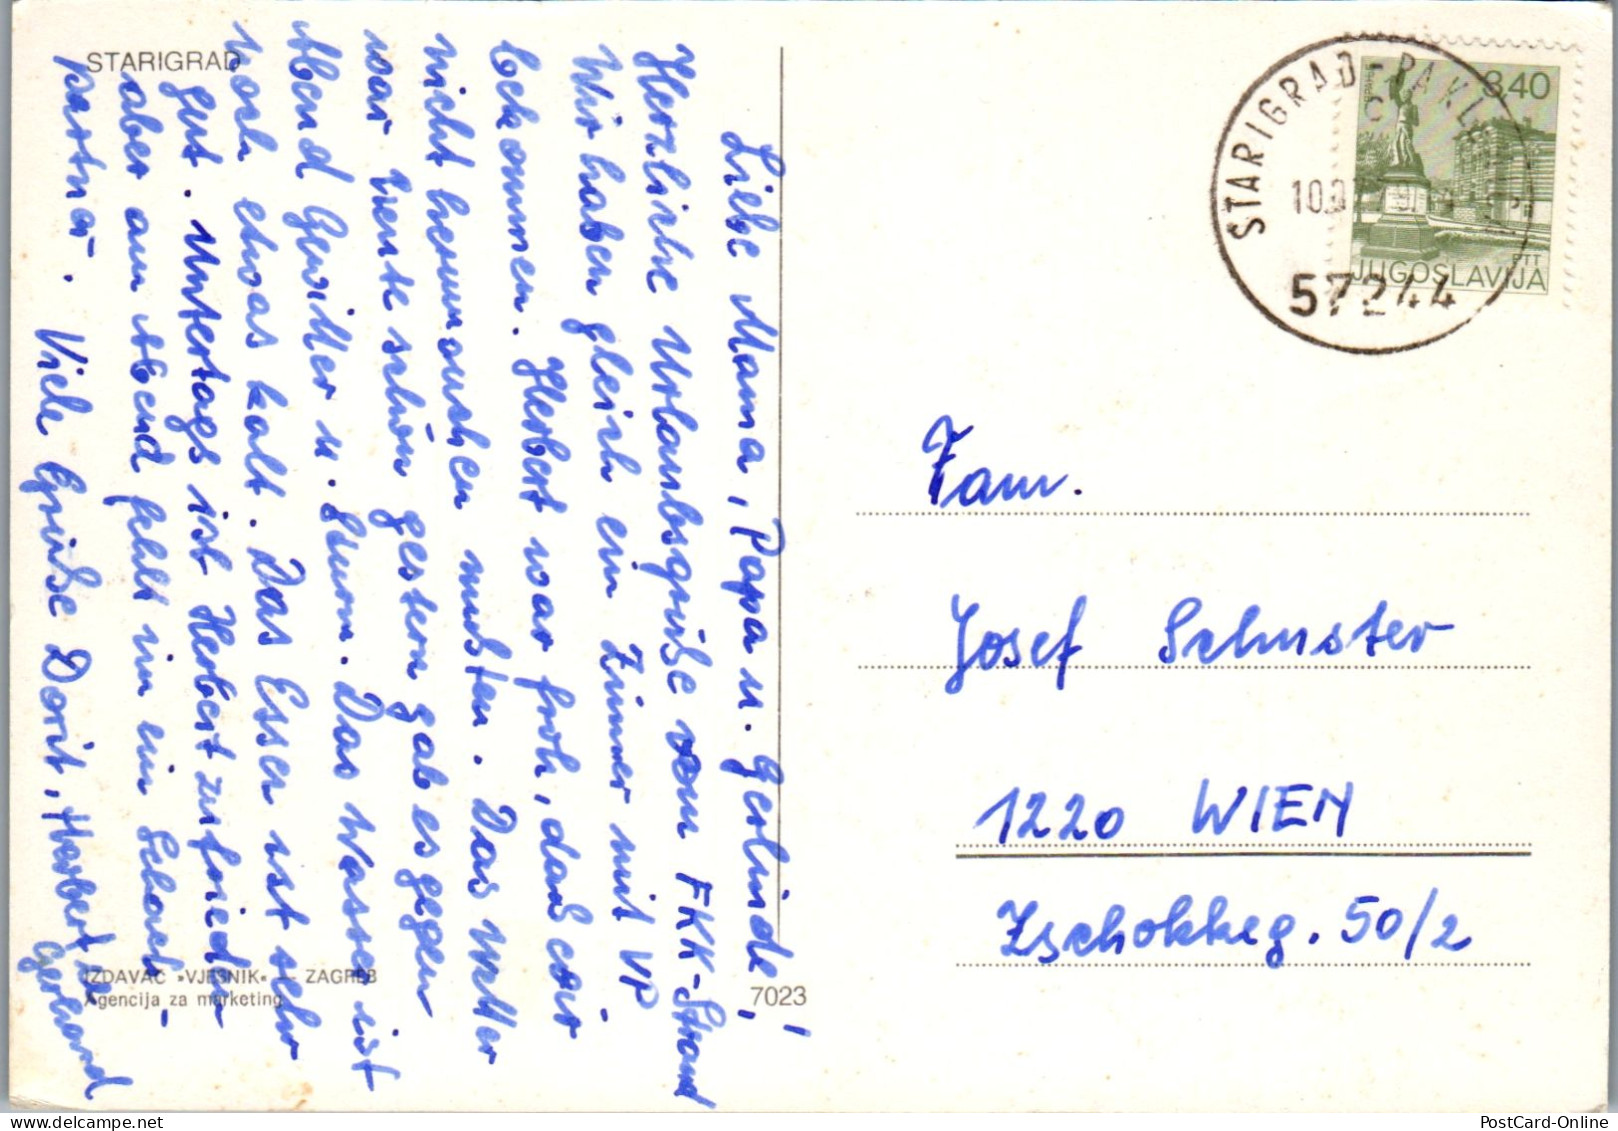 STARIGRAD
Liebe Mama, Papa u. Gerlinde!
Herzliche Urlaubsgrüße vom FKK-Strand!
Wir haben gleich ein Zimmer mit VP
bekommen. Herbert war froh, daß wir
nicht herumsuchen mußten. Das Wetter
war heute schön gestern gab es gegen
Abend Gewitter u. Sturm. Das Wasser ist
noch etwas kalt. Das Essen ist sehr
gut. Untertags ist Herbert zufrieden
aber am Abend fehlt im ein Schach-
partner. Viele Grüße Dorit, Herbert u.
Gerhard
IZDAVAČ »VJESNIK« — ZAGREB
Agencija za marketing
7023
STARIGRAD-PAKLENICA
10.
57244
3,40
PTT
JUGOSLAVIJA
Fam.
Josef Schuster
1220 WIEN
Zschokkeg. 50/2
PostCard-Online